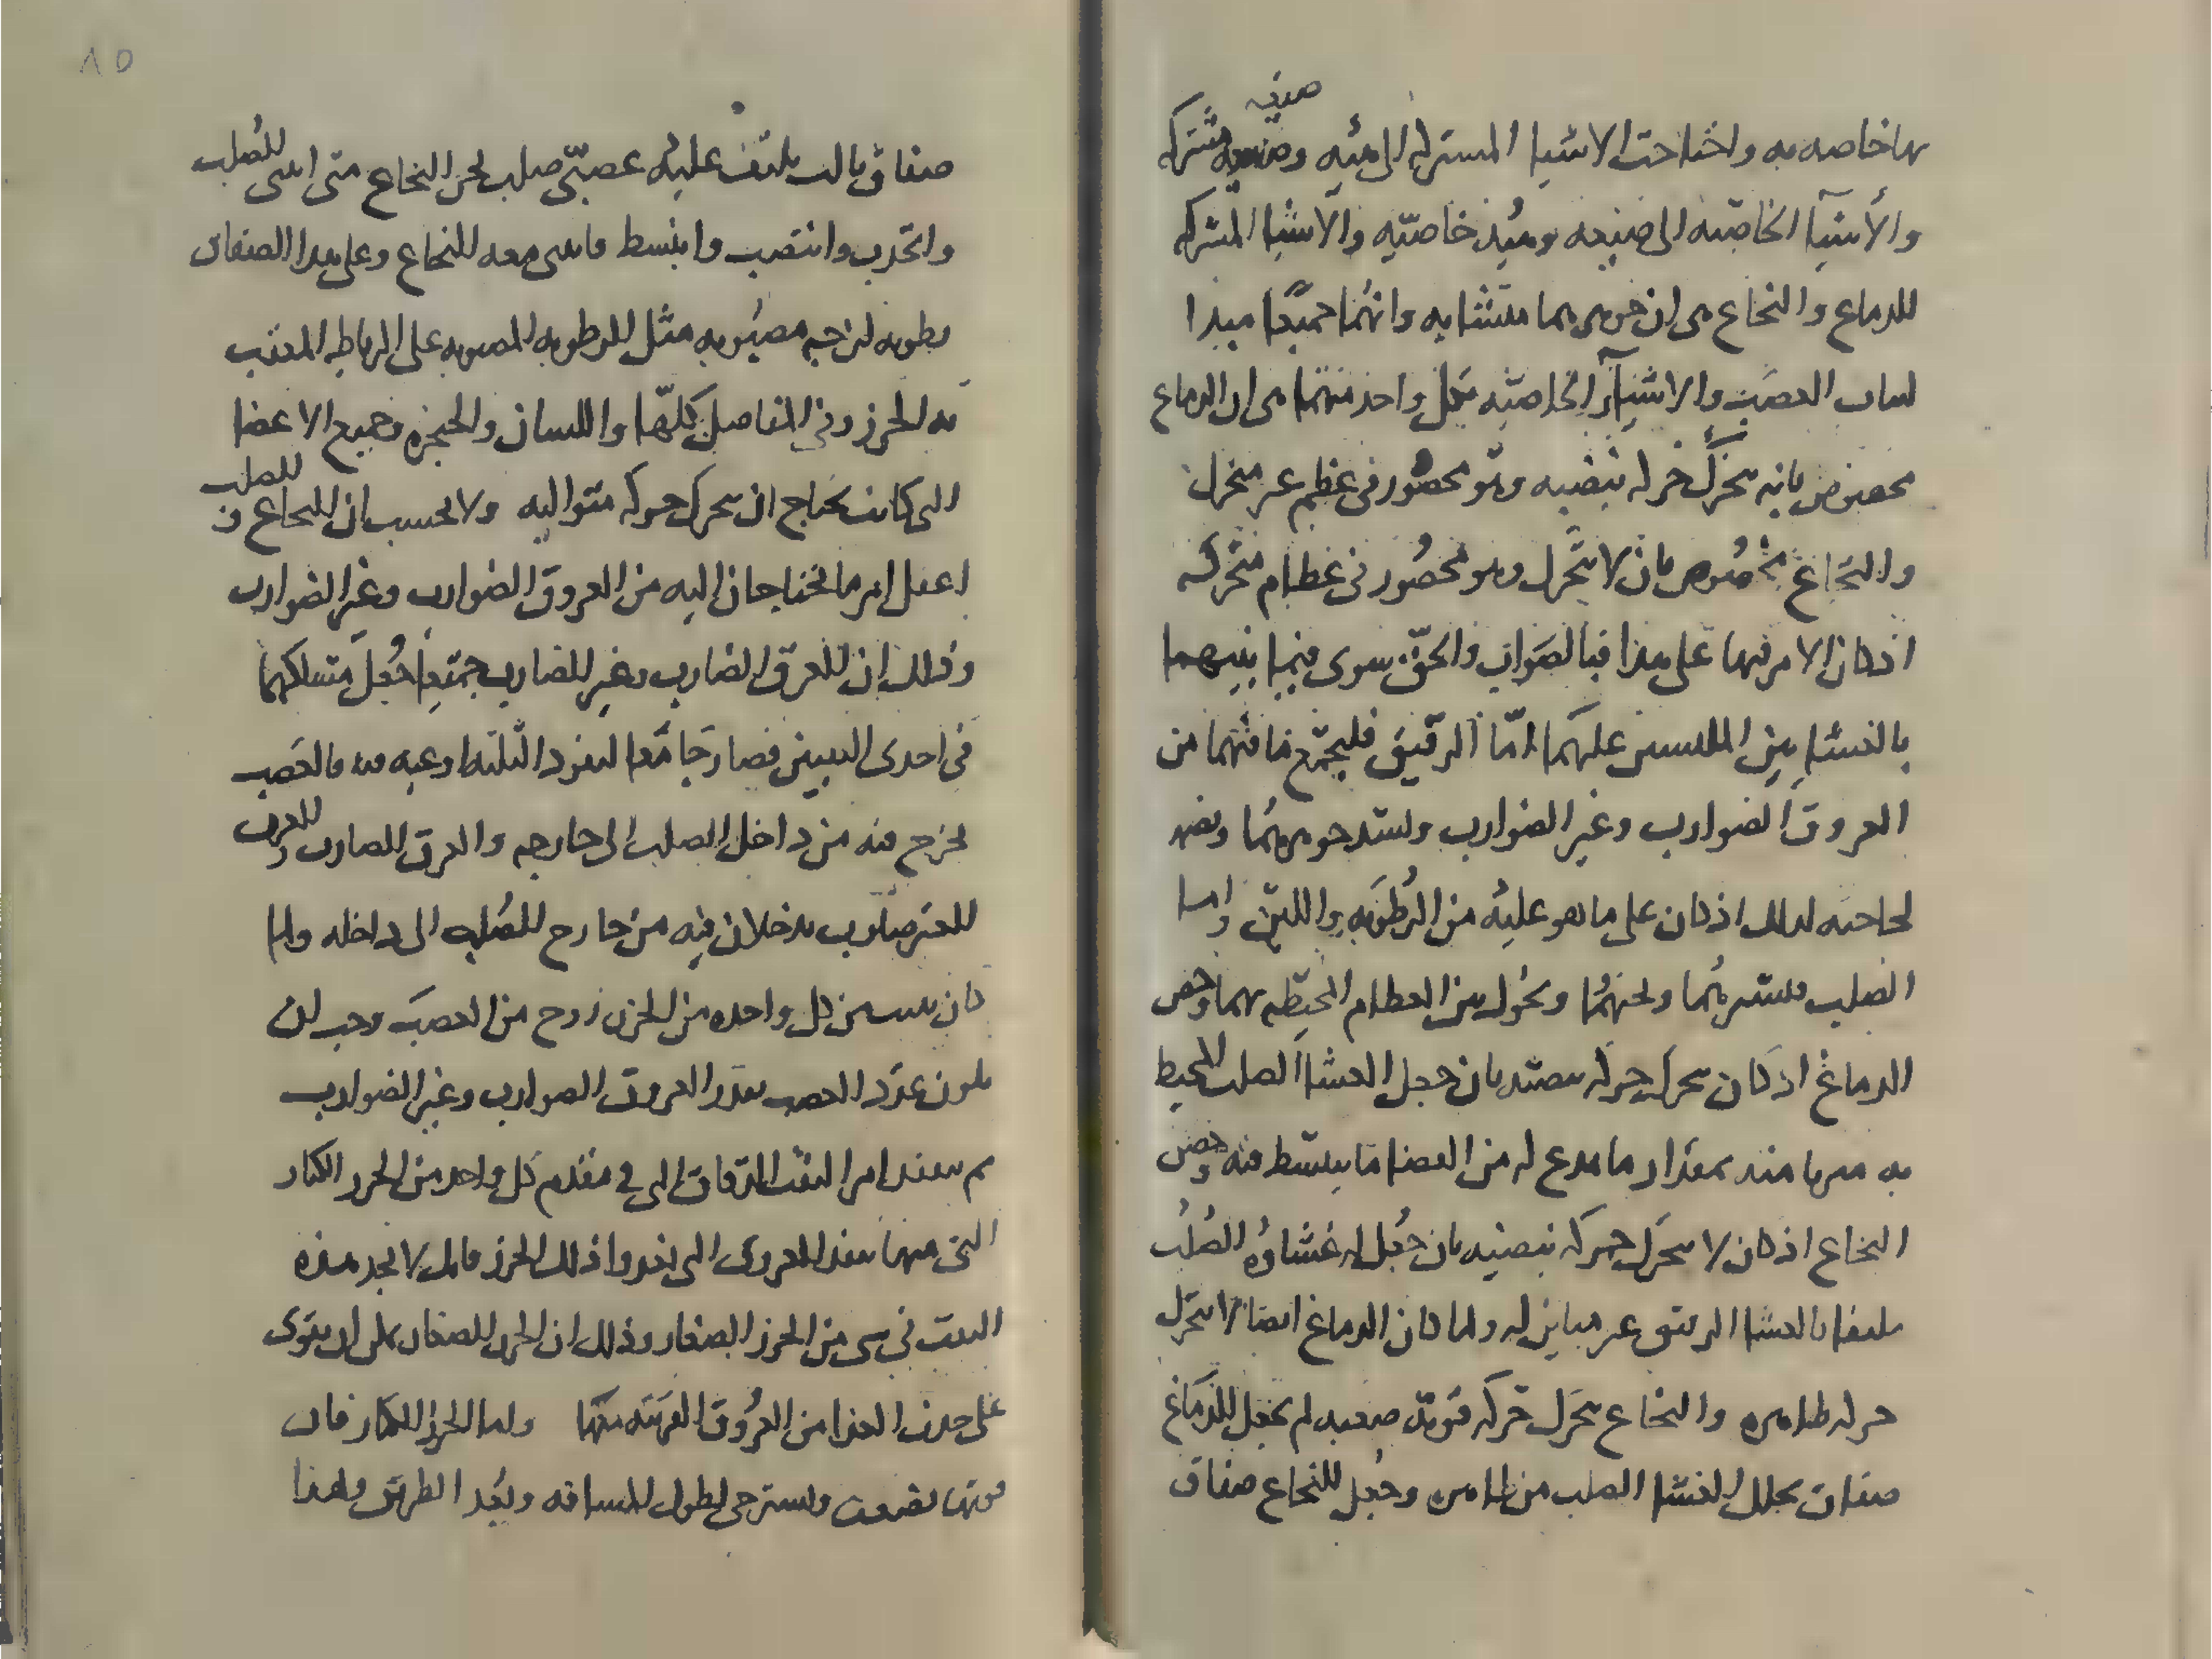 بها خاصه به واحتاجت الاشيا المشتركه الى مئيه وصنيعه مشتركه
صنيعه
والأشيآ الخاصّه الى صنيعه ومئيه خاصيّه والاشيا المشتركه
للدماغ والنخاع هى ان جوهرهما متشابه وانهما جميعًا مبدا
لنبات العصب والاشيآ الخاصيّه بكل واحد منهما هى ان الدماغ
مخصوص بانه يتحرّك حركه نبضيه وهو محصور فى عظم غير متحرك
والنخاع مخصُوص بان لا يتحرك وهو محصُور فى عظام متحركه
اذ كان الامر فيها على هذا فبالصَواب والحقّ سوى فيما بينهما
بالغشايين الملبسين عليهما امّا الرقيق فليجمع ما فيهما من
العروق الضوارب وغير الضوارب وليشد جوهرهما ويضمه
لحاجته لذلك اذ كان على ما هو عليه من الرُطوَبه واللين واما
الصلب فليسترهما ويجنهُما ويحُول بين العظام المحيطه بهما وخص
الدماغ اذ كان يتحرك حركه نبضيه بان جعل الغشا الصلب المحيط
به متبريا منه بمقدار ما يدع له من الفضا ما ينبسط فيه وخص
النخاع اذ كان لا يتحرّك حركه نبضيه بان جُعل له غشاؤه الصُلب
ملتفا بالغشا الرقيق غير مباين له ولما كان الدماغ ايضا لا يتحرك
حركه ظاهره والنخاع يتحرك حركه قويّه صعبه لم يجعل للدّماغ
صفاق يجلل الغشا الصلب من ظاهره وجُعل للنخاع صفاق
٨٥
صفاق ثالث يلتف عليه عصبّى صلب يحرز النخاع متى انثنى للصُلب
واتحدب وانتصب وانبسط فانثنى معه النخاع وعلى هذا الصفاق
رطوبه لزجه مصبُوبه مثل الرطوبه المصبوبه على الرباط المعقب
به الخرز وفى المفاصل كلّها واللسان والحنجره وجميع الاعضا
التى كانت تحتاج ان تتحرك حركه متواليه ولا تحسب ان النخاع و
للصلب
اغفل امر ما يحتاجان اليه من العروق الضوارب وغير الضوارب
وذلك ان للعرق الضارب وغير الضارب جميعا جُعل مسلكهما
فى احدى الثقبين فصار جامعا لنفوذ الثلثه اوعيه فيه فالعصب
يخرج منه من داخل الصلب الى خارجه والعرق الضارب والعرق
الغير ضارب يدخلان فيه من خارج الصُلب الى داخله ولما
كان ينبت من كل واحده من الخرز زوج من العصَب وجب ان
يكون عدَد العصب بعدد العروق الضوارب وغير الضوارب
ثم تفقد امر الثقب الدقاق التى فى مقدم كل واحد من الخرز الكبار
التى منها تنفذ العروق التى تغدوا ذلك الخرز فانك لا تجد هذه
الثقب فى شى من الخرز الصغار وذلك ان الخرز الصغار يمكن ان يقوى
على جذب الغذا من العرُوق القريبه منها واما الخرز الكبار فان
قوتها تضعف وتسترخى لطول المسافه وبُعد الطريق ولهذا